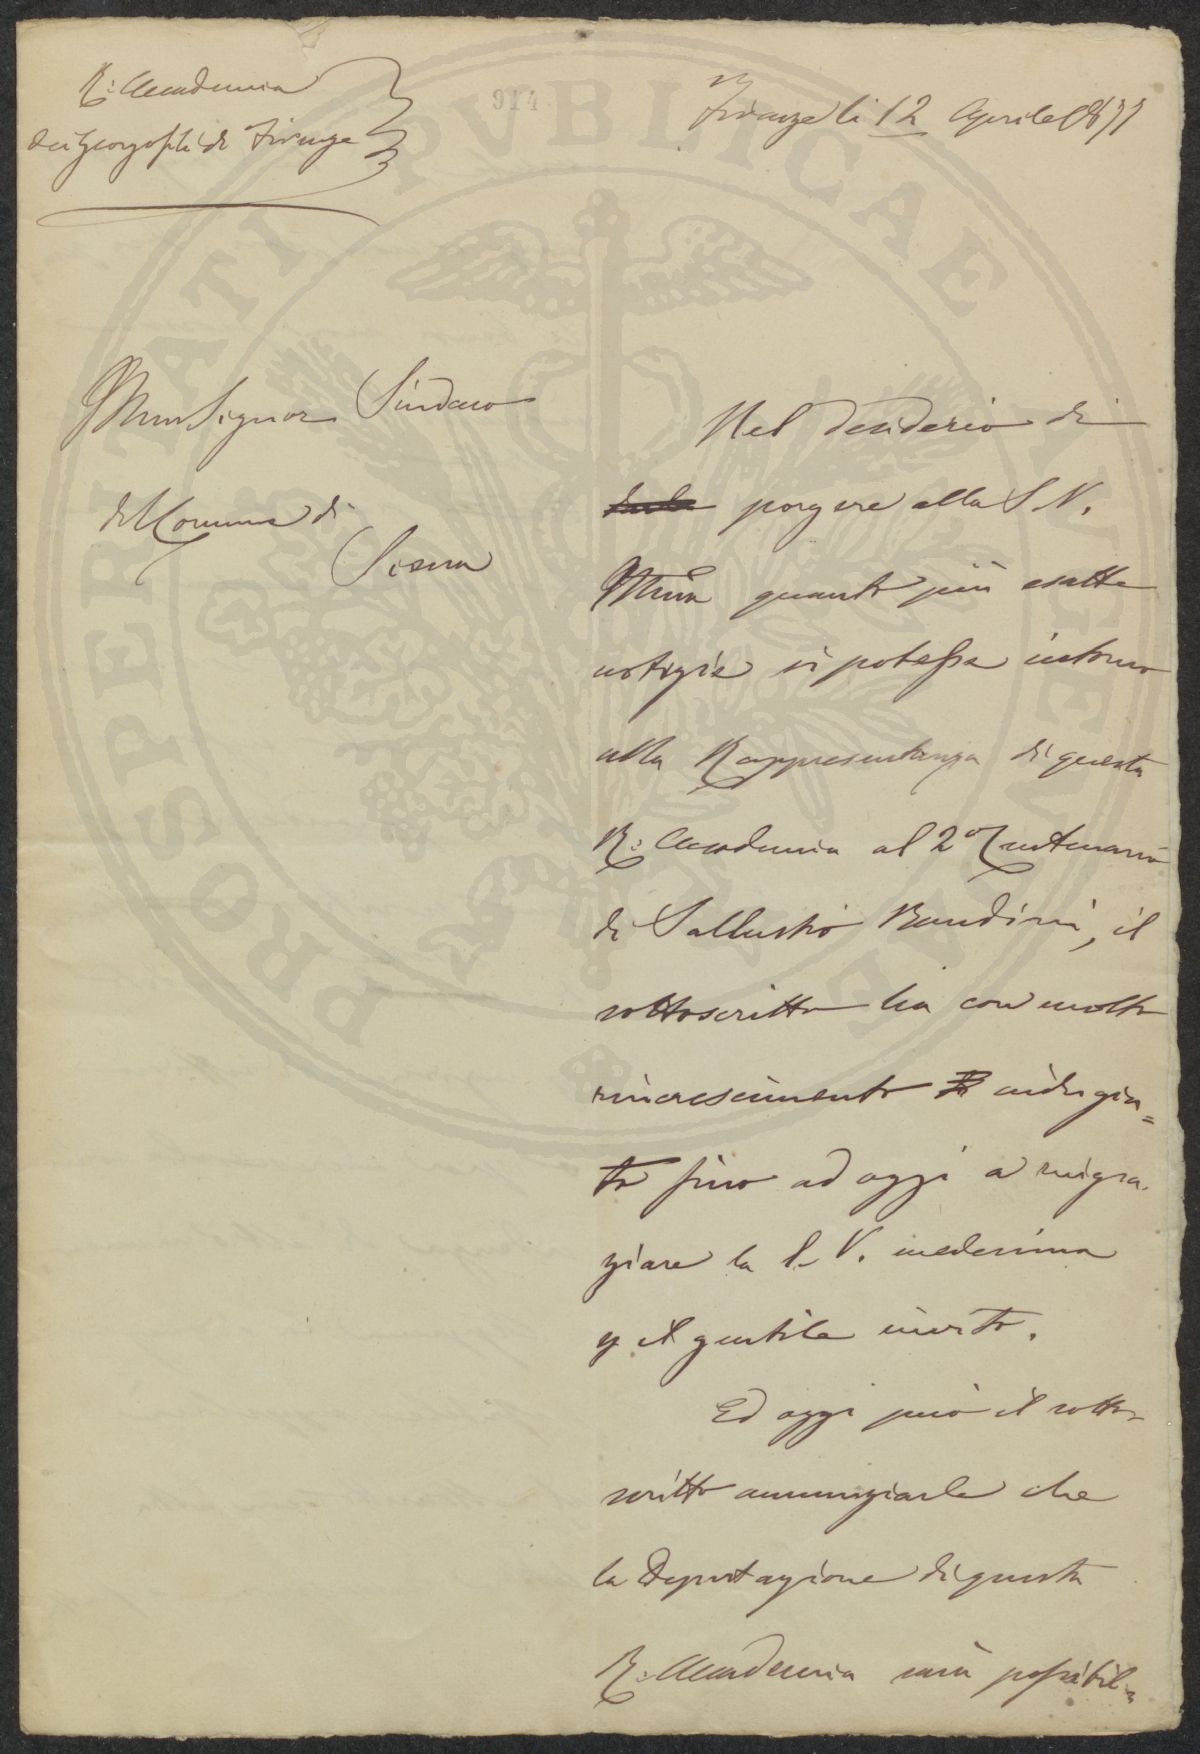 R: Accademia
dei Georgofili di Firenze
914
Firenze li 12 Aprile 1877
Illmo Signor Sindaco
del Comune di
Siena
Nel desiderio di
porgere alla S. V.
Illma quanto più esatte
notizie si potesse intorno
alla Rappresentanza di questa
R: Accademia al 2° Centenario
di Sallustio Bandini, il
sottoscritto ha con molto
rincrescimento indugia=
to fino ad oggi a ringra-
ziare la S. V. medesima
p il gentile invito.
Ed oggi può il sotto-
scritto annunziarle che
la Deputazione di questa
R. Accademia sarà possibil-
PROSPERITATI PVBLICAE AVGENDAE